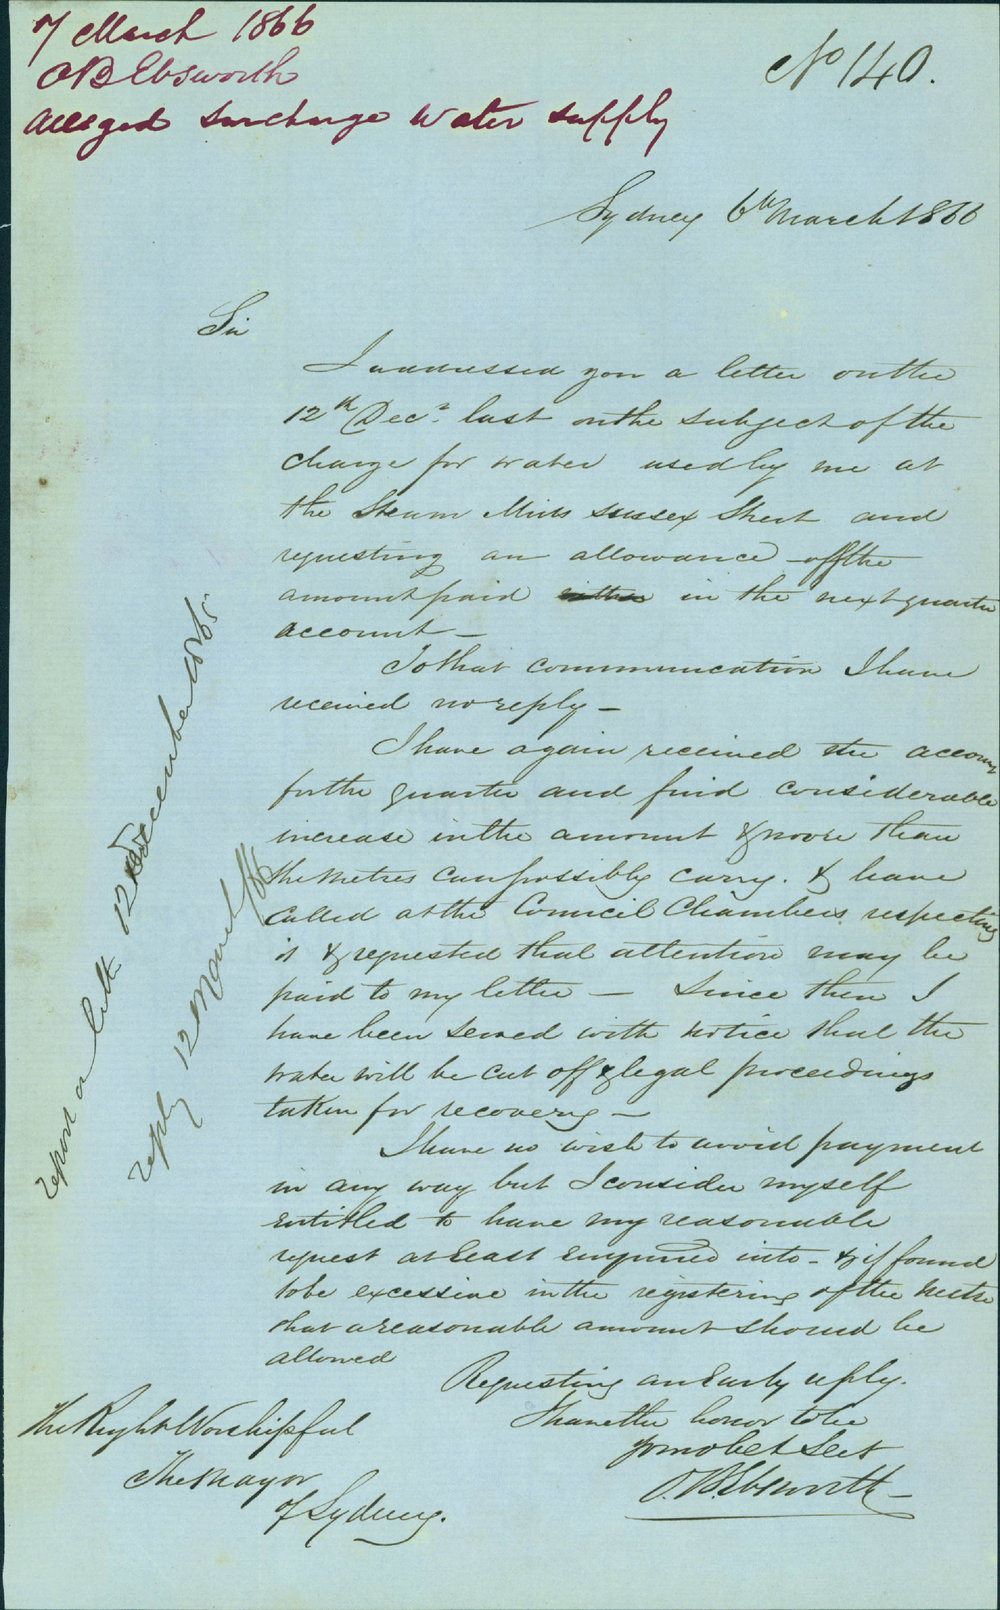 7 March 1866
O B Ebsworth
Alleged surcharge Water supply
No 140.
Sydney 6th March 1866
Sir
I addressed you a letter on the
12th Decr. last on the subject of the
charge for water used by me at
the Steam Mills Sussex Street and
requesting an allowance off the
amount paid in the next quarter
account —
To that communication I have
received no reply —
I have again received the account
for the quarter and find considerable
increase in the amount & more than
the metres can possibly carry. & have
called at the Council Chambers respecting
it & requested that attention may be
paid to my letter — Since then I
have been served with notice that the
water will be cut off & legal proceedings
taken for recovery —
I have no wish to avoid payment
in any way but I consider myself
entitled to have my reasonable
request at least enquired into - & if found
to be excessive in the registering of the metre
that a reasonable amount should be
allowed
Requesting an Early reply.
I have the honor to be
Your obet Sevt
O. B. Ebsworth —
The Right Worshipful
The Mayor
of Sydney.
report on letter 12 December 1865
reply 12 March /66